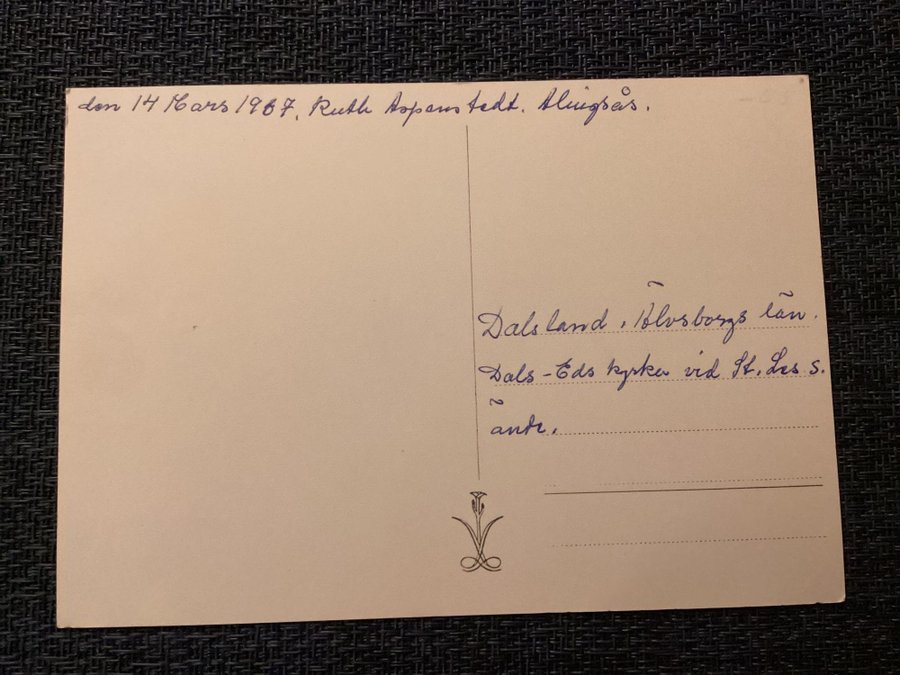 den 14 Mars 1967. Ruth Aspenstedt. Alingsås.
Dalsland, Älvsborgs län.
Dals-Eds kyrka vid St. Les s.
ände.